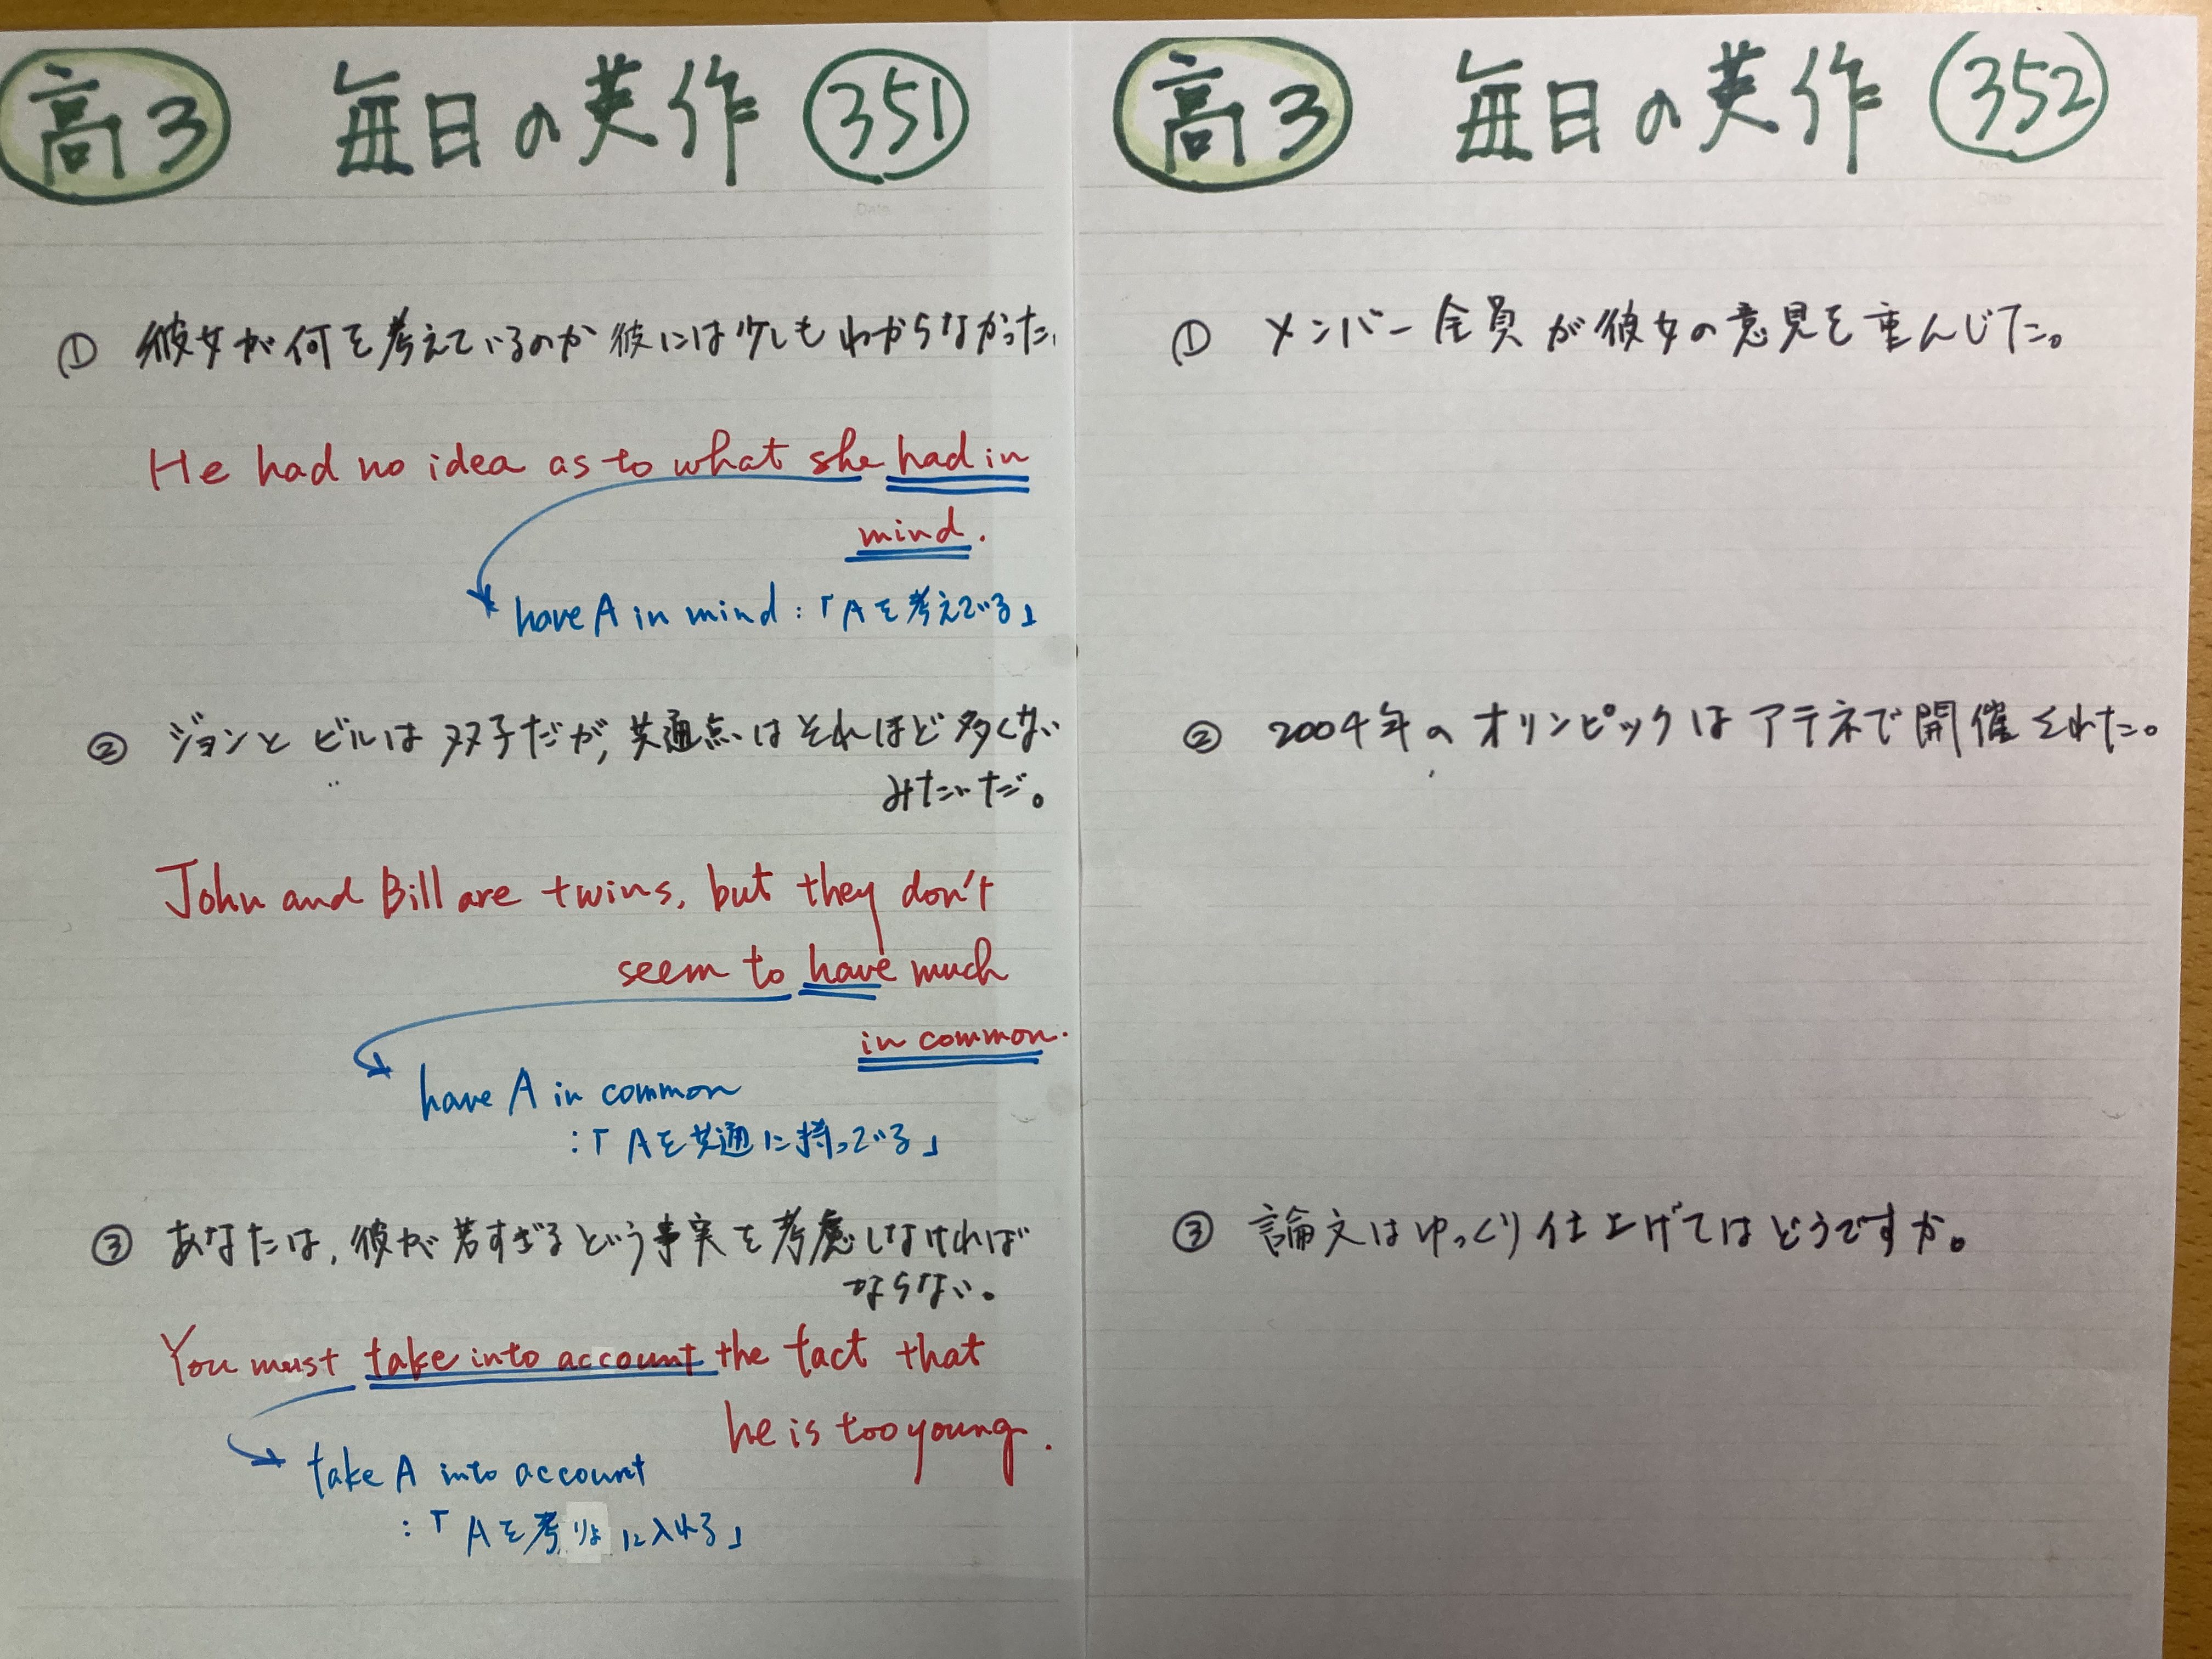 高3 毎日の英作 351
① 彼女が何を考えているのか彼には少しもわからなかった.
He had no idea as to what she had in
mind.
have A in mind : 「Aを考えている」
② ジョンとビルは双子だが, 共通点はそれほど多くない
みたいだ。
John and Bill are twins, but they don't
seem to have much
in common.
have A in common
: 「Aを共通に持っている」
③ あなたは, 彼が若すぎるという事実を考慮しなければ
ならない。
You must take into account the fact that
he is too young.
take A into account
: 「Aを考りょに入れる」
高3 毎日の英作 352
Date
① メンバー全員が彼女の意見を重んじた。
② 2004年のオリンピックはアテネで開催された。
③ 論文はゆっくり仕上げてはどうですか。